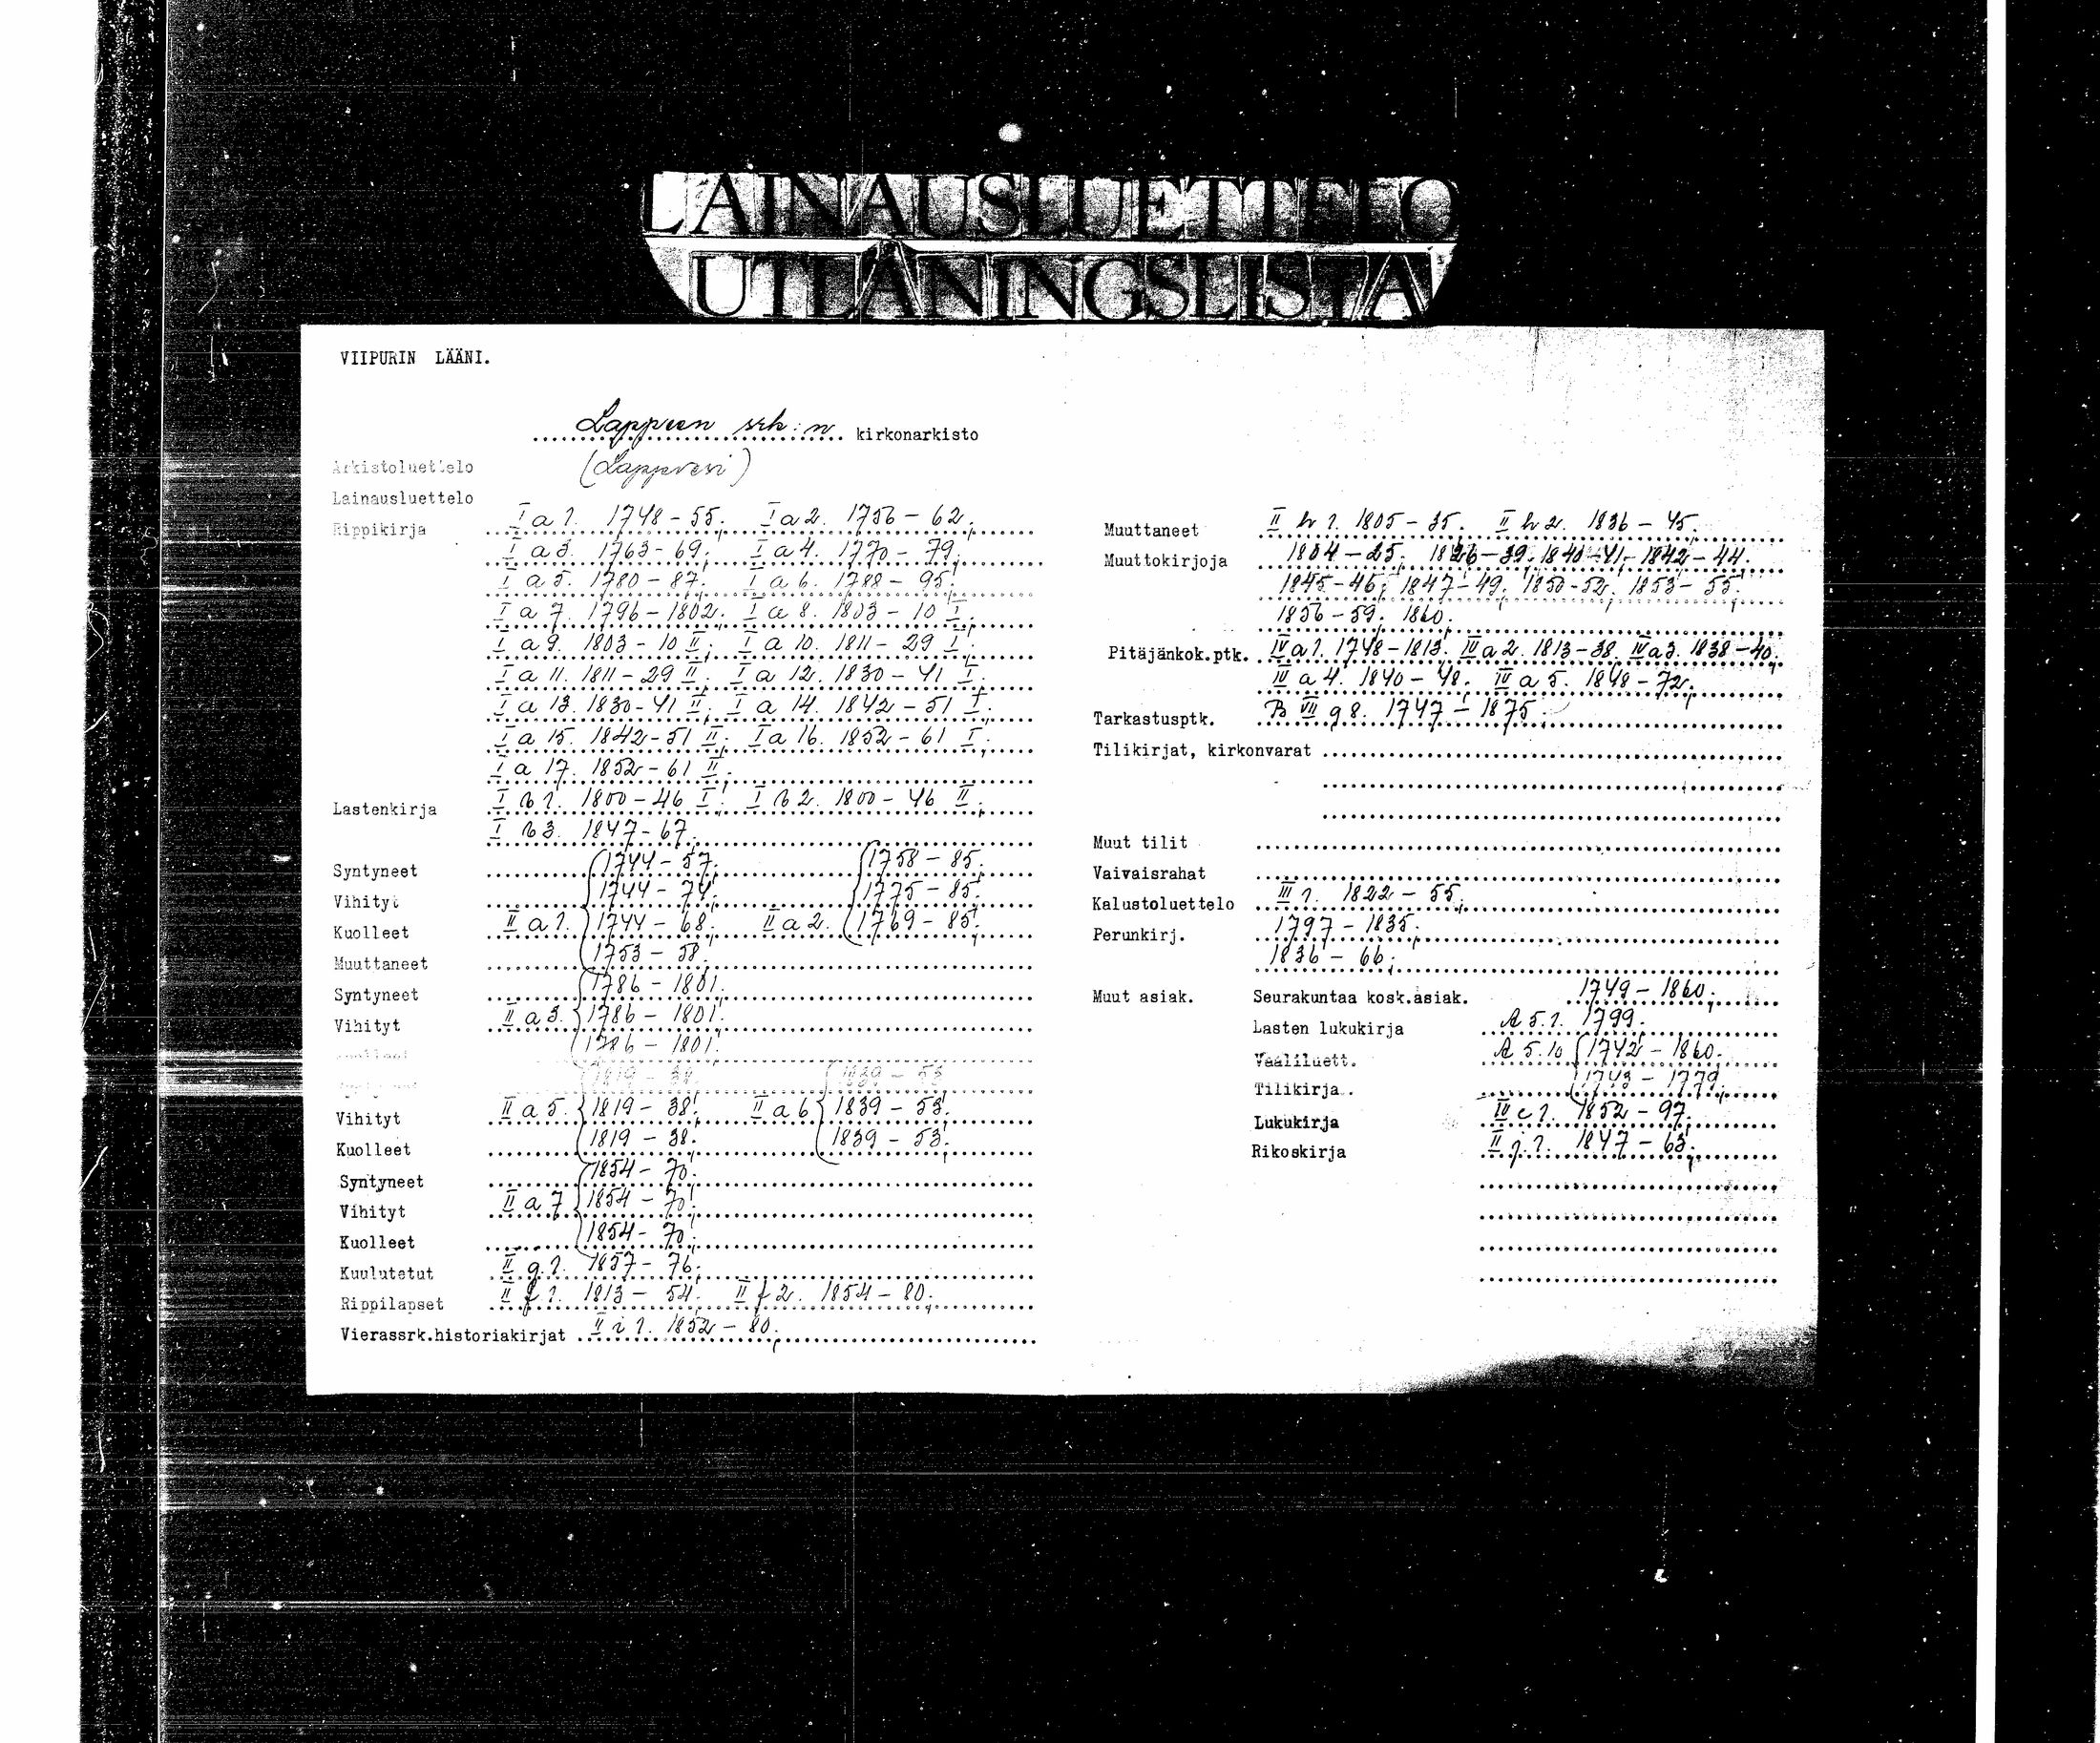 LAINAUSLUETTELO
UTLÅNINGSLISTA
VIIPURIN LÄÄNI.
Lappeen srk:n kirkonarkisto
Arkistoluettelo (Lappvesi)
Lainausluettelo
Rippikirja I a 1. 1748-55. I a 2. 1756-62.
I a 3. 1763-69. I a 4. 1770-79.
I a 5. 1780-87. I a 6. 1788-95.
I a 7. 1796-1802. I a 8. 1803-10 I.
I a 9. 1803-10 II. I a 10. 1811-29 I.
I a 11. 1811-29 II. I a 12. 1830-41 I.
I a 13. 1830-41 II. I a 14. 1842-51 I.
I a 15. 1842-51 II. I a 16. 1852-61 I.
I a 17. 1852-61 II.
Lastenkirja I b 1. 1800-46 I. I b 2. 1800-46 II.
I b 3. 1847-67.
Syntyneet 1744-57. 1758-85.
Vihityt 1744-74. 1775-85.
Kuolleet II a 1. 1744-68. II a 2. 1769-85.
Muuttaneet 1753-58.
Syntyneet 1786-1801.
Vihityt II a 3. 1786-1801.
Kuolleet 1786-1801.
1819-38. 1839-53
Vihityt II a 5. 1819-38. II a 6 1839-53.
Kuolleet 1819-38. 1839-53.
Syntyneet 1854-70.
Vihityt II a 7 1854-70.
Kuolleet 1854-70.
Kuulutetut II g 1. 1857-76.
Rippilapset II f 1. 1813-54. II f 2. 1854-80.
Vierassrk.historiakirjat II i 1. 1852-80.
Muuttaneet II h 1. 1805-35. II h 2. 1836-45.
Muuttokirjoja 1804-25. 1826-39. 1840-41. 1842-44.
1845-46. 1847-49. 1850-52. 1853-55.
1856-59. 1860.
Pitäjänkok.ptk. IV a 1. 1748-1813. IV a 2. 1813-38. IV a 3. 1838-40.
IV a 4. 1840-48. IV a 5. 1848-72.
Tarkastusptk. B VII g 8. 1747-1875.
Tilikirjat, kirkonvarat
Muut tilit
Vaivaisrahat
Kalustoluettelo III 1. 1822-55.
Perunkirj. 1797-1835.
1836-66.
Muut asiak. Seurakuntaa kosk.asiak. 1749-1860.
Lasten lukukirja A 5.1. 1799.
Vaaliluett. A 5.10 1742-1860.
Tilikirja.. 1743-1779.
Lukukirja IV c 1. 1852-97.
Rikoskirja II j 1. 1847-63.